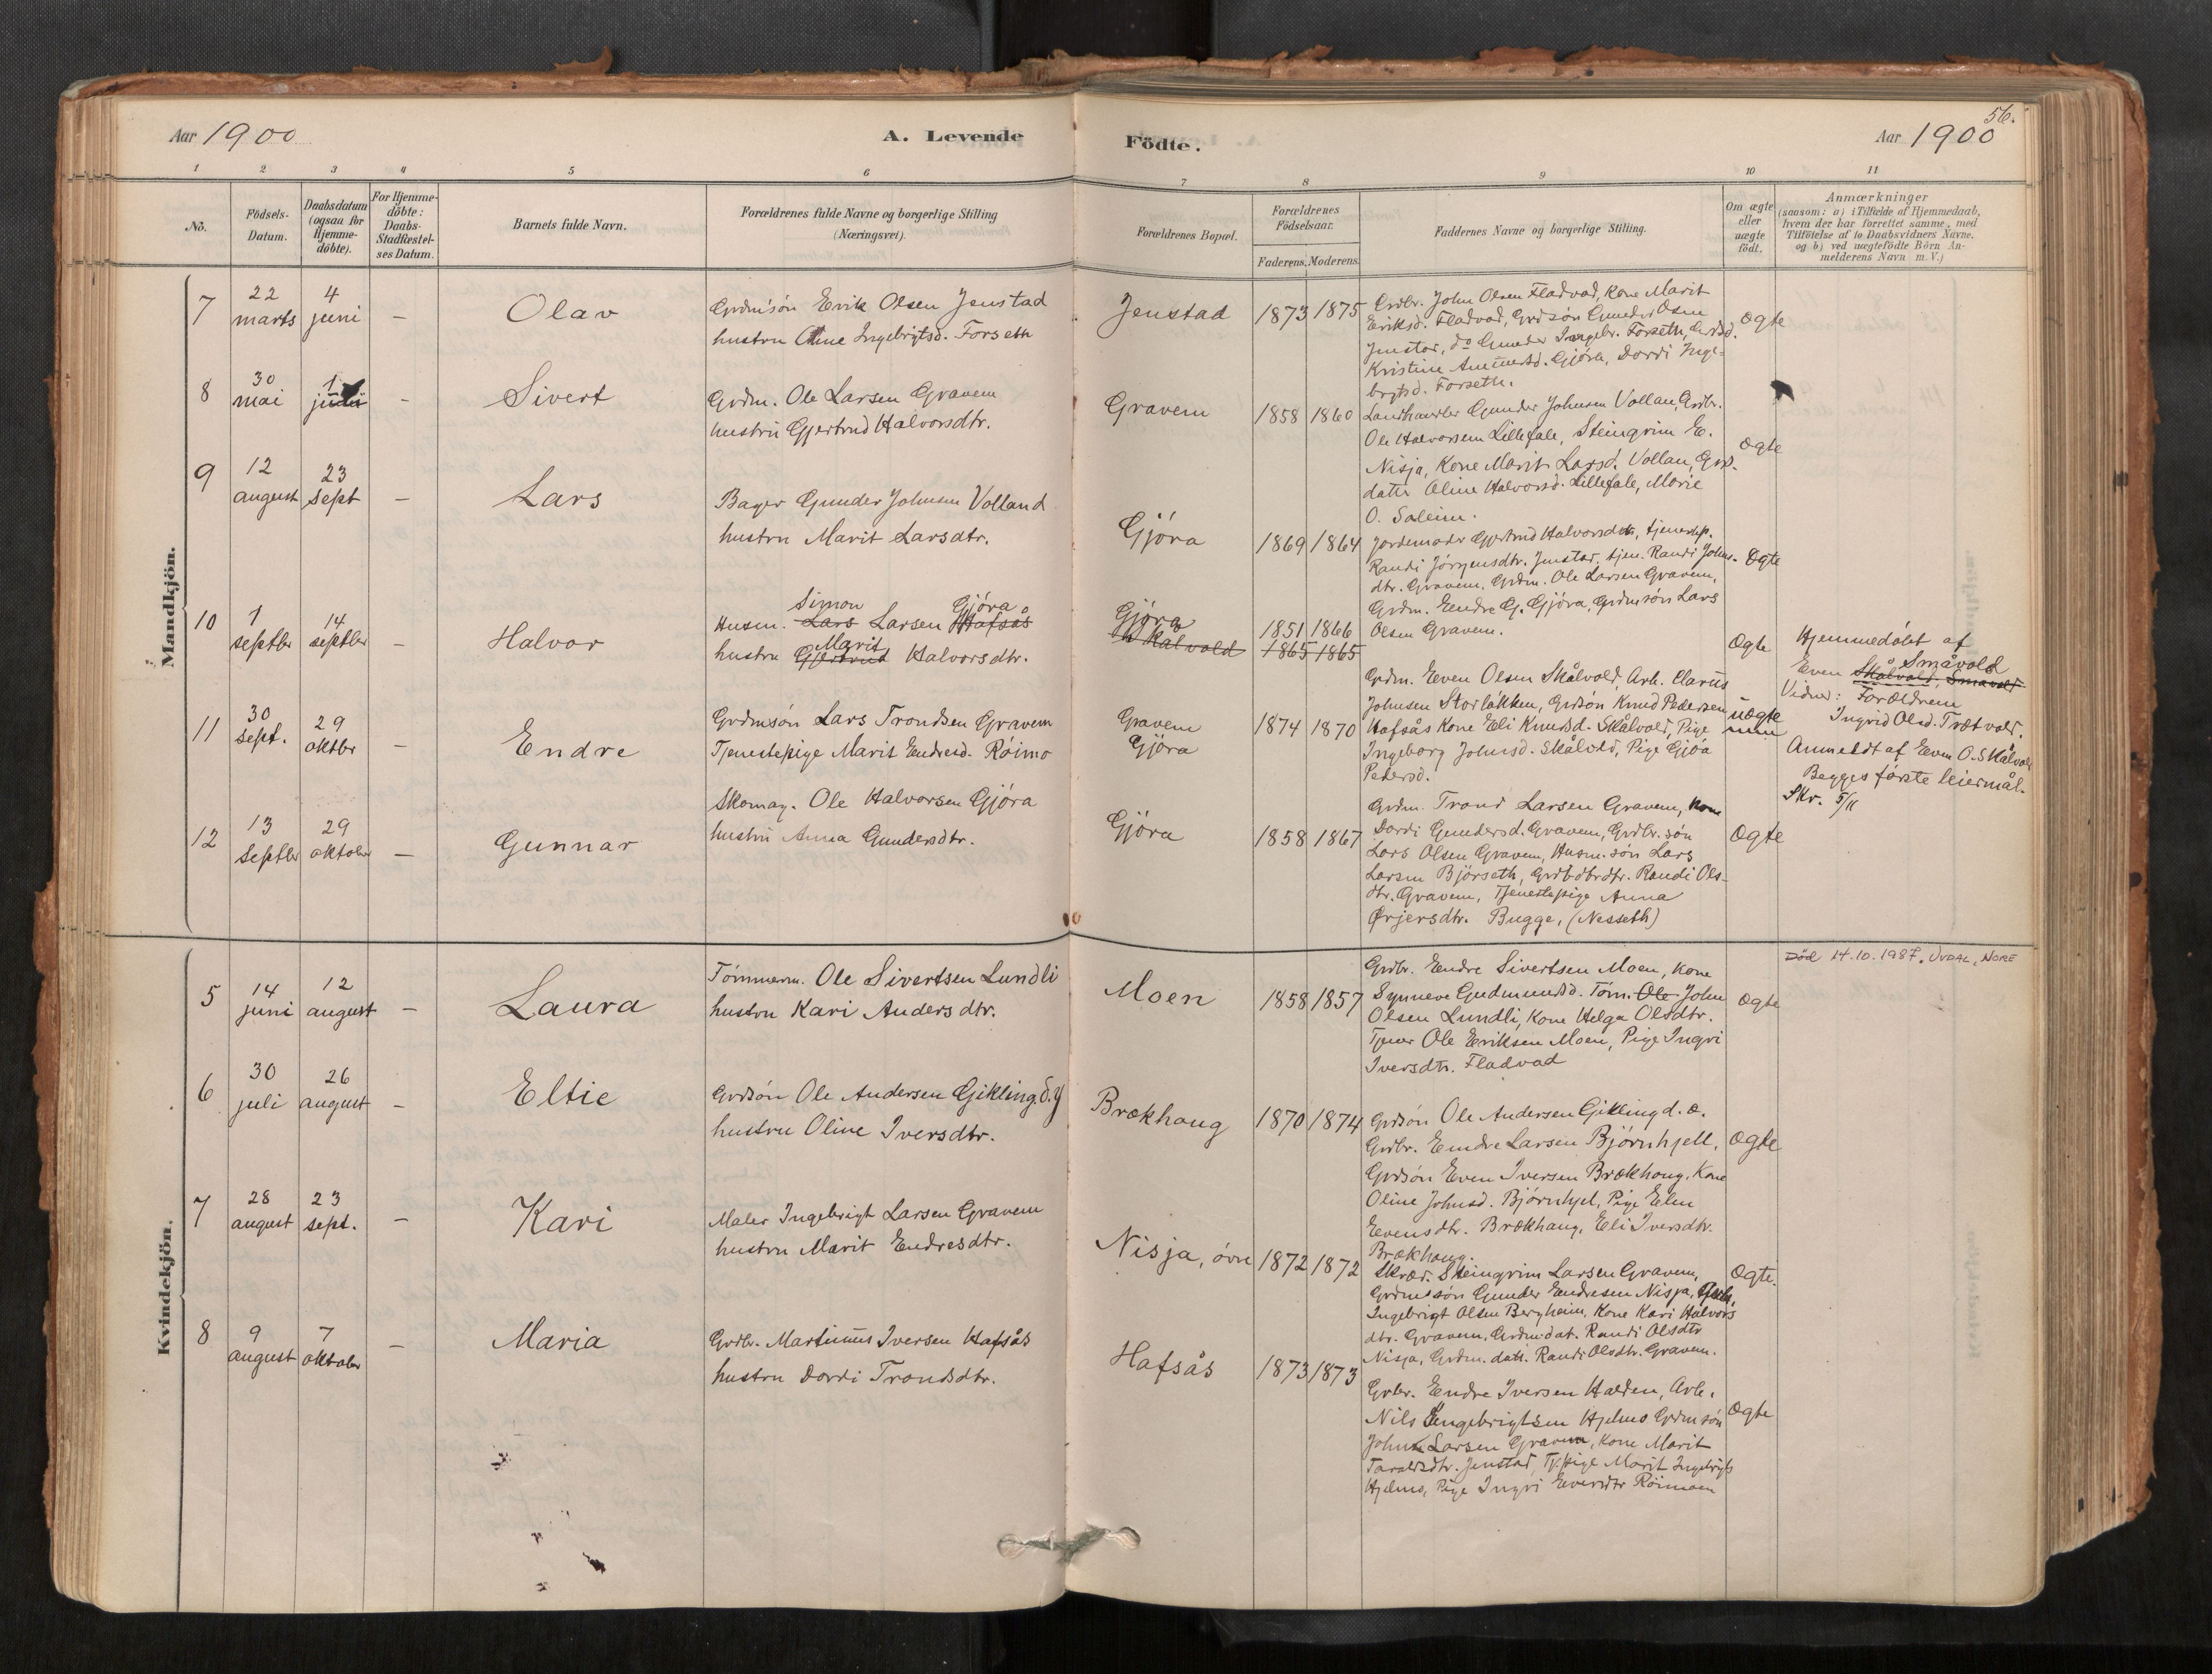 Aar 1900
A. Levende
Födte.
Aar 1900
56.
1 2 3 4 5 6 7 8 9 10 11
No.
Födsels-Datum.
Daabsdatum (ogsaa for Hjemme-döbte).
For Hjemme-döbte: Daabs-Stadfæstel-ses Datum.
Barnets fulde Navn.
Forældrenes fulde Navne og borgerlige Stilling (Næringsvei).
Forældrenes Bopæl.
Forældrenes Födselsaar.
Faderens. Moderens.
Faddernes Navne og borgerlige Stilling.
Om ægte eller uægte födt.
Anmærkninger
(saasom: a) i Tilfælde af Hjemmedaab, hvem der har forrettet samme, med Tilföielse af to Daabsvidners Navne, og b) ved uægtefödte Börn An-melderens Navn m.V.)
Mandkjön.
7
22 marts
4 juni
–
Olav
Grdmsön Erik Olsen Jenstad
hustru Oline Ingebrigtsd. Forseth
Jenstad
1873 1875
Grdbr. John Olsen Fladvad, Kone Marit
Eriksd. Fladvad, Grdsön Gunder Osen
Jenstad, do Gunder Ingebr. Forseth, Grdsd.
Kristine Gjöra, Dordi Inge-
brgtsd. Forseth.
Ægte
8
30 mai
1 juli
–
Sivert
Grdm. Ole Larsen Gravem
hustru Gjertrud Halvorsdtr.
Gravem
1858 1860
Landhandler Gunder Johnsen Vollan, Grdbr.
Ole Halvorsen Lillefale, Steingrim E.
Nisja, Kone Marit Larsd. Vollan, Grd-
datter Oline Halvorsd. Lillefale, Marie
O. Saleim.
Ægte
9
12 august
23 sept
–
Lars
Bager Gunder Johnsen Volland
hustru Marit Larsdtr.
Gjöra
1869 1864
Jordemoder Gjertrud Halvorsdtr, tjenestep.
Randi Jörgensdtr. Jenstad, tjen. Randi Johns-
dtr. Gravem, Grdm. Ole Larsen Gravem,
Grdm. Endre G. Gjöra, Grdmsön Lars
Olsen Gravem.
Ægte
10
1 septbr
14 septbr
–
Halvor
Simon Gjöra
Husm. Lars Larsen Hafsås
Marit
hustru Gjertrud Halvorsdtr.
Gjöra
Skålvold
1851 1866
1865 1865
Grdm. Even Olsen Skålvold, Arb. Clarus
Johnsen Storlökken, Grdsön Knud Pedersen
Hafsås Kone Eli Knudsd. Skålvold, Pige
Ingeborg Johnsd. Skålvold, Pige Gjöa
Pedersd.
Ægte
Hjemmedöbt af
Småvold
Even Skålvold, Småvold
Vidner: Forældrene
Ingrid Olsd. Trætvold.
11
30 sept.
29 oktbr
–
Endre
Grdmsön Lars Trondsen Gravem
Tjenestepige Marit Endresd. Röimo
Gravem
Gjöra
1874 1870
uægte
Anmeldt af Even O. Skålvold
Begges förste leiermål.
Skr. 5/11
12
13 septbr
29 oktober
–
Gunnar
Skomag. Ole Halvorsen Gjöra
hustru Anna Gundersdtr.
Gjöra
1858 1867
Grdm. Trond Larsen Gravem, Kone
Dordi Gundersd. Gravem, Grdbr. sön
Lars Olsen Gravem, Husm. sön Lars
Larsen Björseth, Grdbrdtr. Randi Ols-
dtr. Gravem, Tjenestepige Anna
Ørjersdtr. Bugge, (Nesseth)
Ægte
Kvindekjön.
5
14 juni
12 august
–
Laura
Tömmerm. Ole Sivertsen Lundli
hustru Kari Andersdtr.
Moen
1858 1857
Grdbr. Endre Sivertsen Moen, Kone
Synneve Gudmundsd. Töm. Ole John
Olsen Lundli, Kone Helga Olsdtr.
Tjener Ole Eriksen Moen, Pige Ingri
Iversdtr. Fladvad
Ægte
Död 14.10.1987. Uvdal, Nore
6
30 juli
26 august
–
Eltie
Grdsön Ole Andersen Gikling d.y
hustru Oline Iversdtr.
Brækhaug
1870 1874
Grdsön Ole Andersen Gikling d. æ.
Grdbr. Endre Larsen Björnhjell.
Grdsön Even Iversen Brækhaug. Kone
Oline Johnsd. Björnhjel, Pige Elen
Evensdtr. Brækhaug, Eli Iversdtr.
Brækhaug.
Ægte
7
28 august
23 sept.
–
Kari
Maler Ingebrigt Larsen Gravem
hustru Marit Endresdtr.
Nisja, övre
1872 1872
Skræd. Steingrim Larsen Gravem,
Grdmssön Gunder Endresen Nisja,
Ingebrigt Olsen Bergheim, Kone Kari Halvors
dtr. Gravem, Grdm.dat. Randi Olsdtr
Nisja, Grdm. datt. Randi Olsdtr. Gravem.
Ægte.
8
9 august
7 oktober
–
Maria
Grdbr. Martinus Iversen Hafsås
hustru Dordi Trondsdtr.
Hafsås
1873 1873
Grdbr. Endre Iversen Halden, Arb.
Nils Ingebrigtsen Hjelmo Grdmsön
John Larsen Gravem, Kone Marit
Taraldsdtr. Jenstad, Tj.pige Marit Ingebrigts
Hjelmo, Pige Ingri Eversdtr Röimoen
Ægte